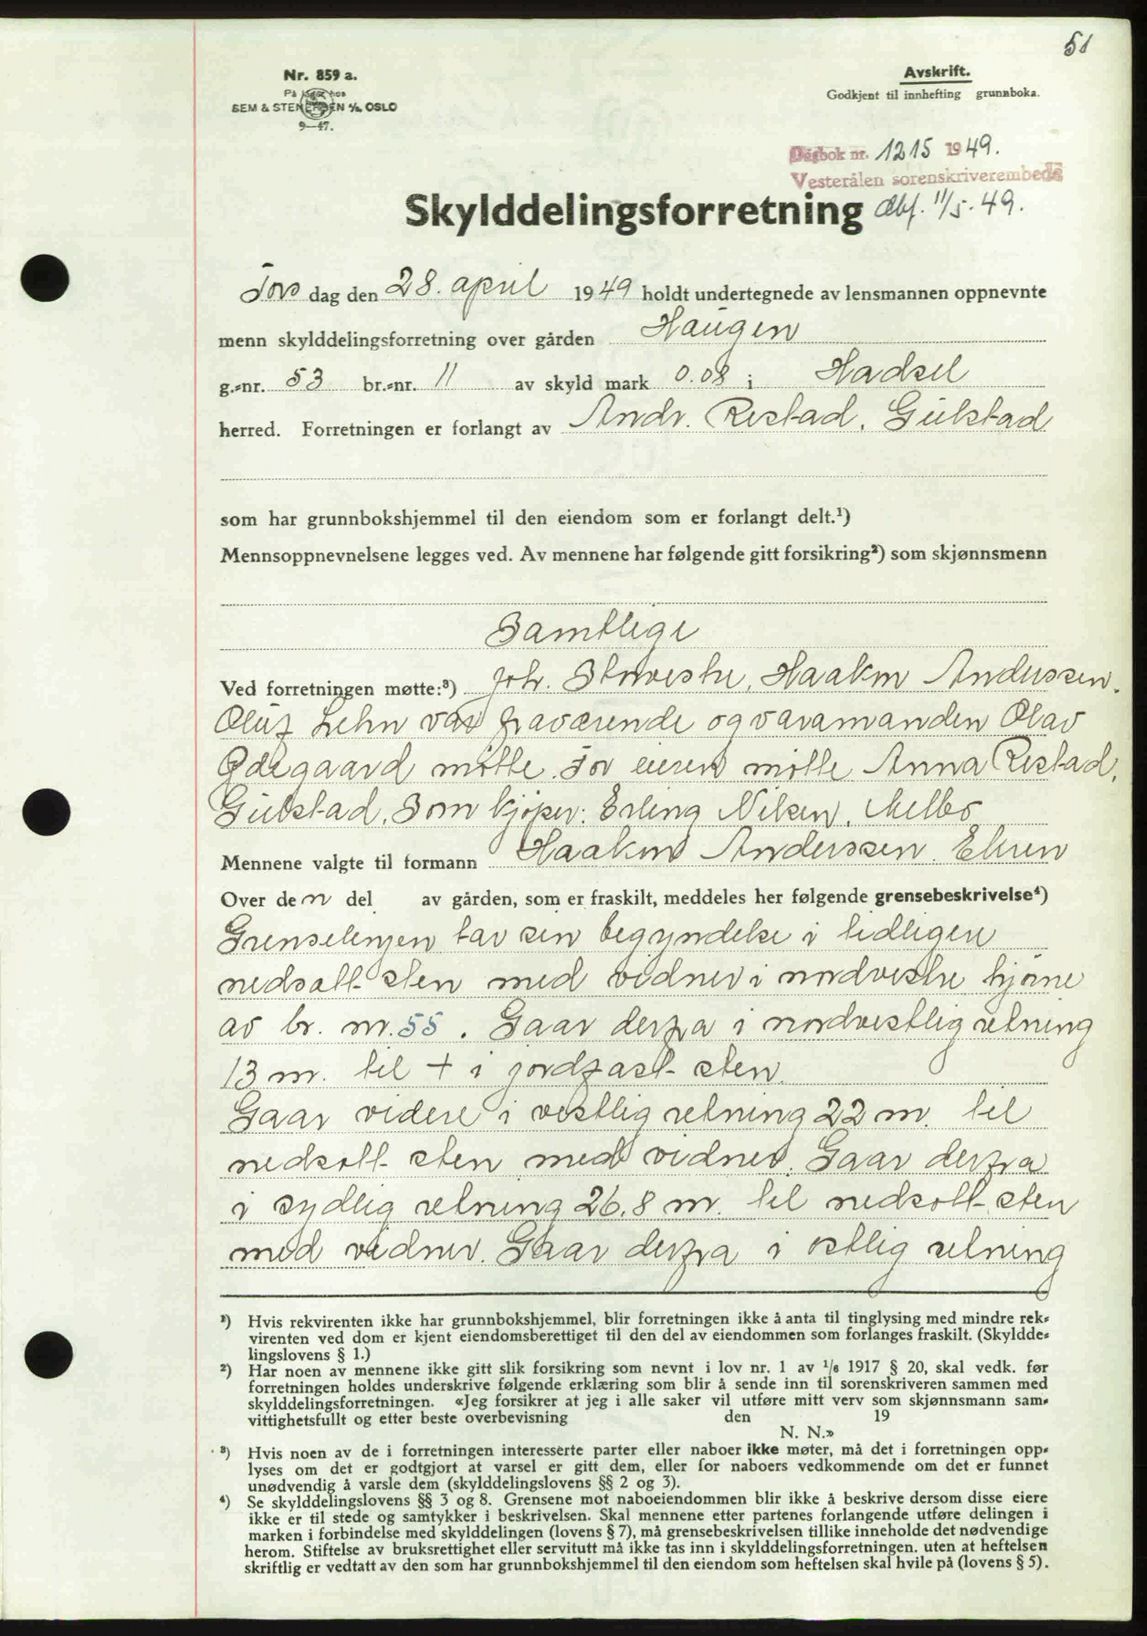 51
Nr. 859 a.
På lager hos
SEM & STENERSEN A/S, OSLO
9—47.
Avskrift.
Godkjent til innhefting grunnboka.
Dagbok nr. 1215 1949.
Vesterålen sorenskriverembede
Skylddelingsforretning
dbf. 11/5-49.
Tors dag den 28. april 1949 holdt undertegnede av lensmannen oppnevnte
menn skylddelingsforretning over gården Haugen
g.=nr. 53 br.=nr. 11 av skyld mark 0.08 i Hadsel
herred. Forretningen er forlangt av Andr. Restad, Gulstad
som har grunnbokshjemmel til den eiendom som er forlangt delt.¹)
Mennsoppnevnelsene legges ved. Av mennene har følgende gitt forsikring²) som skjønnsmenn
Samtlige
Ved forretningen møtte:³) Joh. Haakon Anderssen.
Oluf Lehn var fraværende og varamanden Olav
Ødegaard møtte. For eieren møtte Anna Restad,
Gulstad. Som kjøper: Erling Nilsen, Melbo
Mennene valgte til formann Haakon Anderssen.
Over den del av gården, som er fraskilt, meddeles her følgende grensebeskrivelse⁴)
Grenselinjen tar sin begyndelse i tidligere
nedsatt sten med vidner i nordvestre hjørne
av br. nr. 55. Gaar derfra i nordvestlig retning
13 m. til + i jordfast sten.
Gaar videre i vestlig retning 22 m. til
nedsatt sten med vidner. Gaar derfra
i sydlig retning 26,8 m. til nedsatt sten
med vidner. Gaar derfra i østlig retning
¹) Hvis rekvirenten ikke har grunnbokshjemmel, blir forretningen ikke å anta til tinglysing med mindre rek=
virenten ved dom er kjent eiendomsberettiget til den del av eiendommen som forlanges fraskilt. (Skyldde=
lingslovens § 1.)
²) Har noen av mennene ikke gitt slik forsikring som nevnt i lov nr. 1 av 1/6 1917 § 20, skal vedk. før
forretningen holdes underskrive følgende erklæring som blir å sende inn til sorenskriveren sammen med
skylddelingsforretningen. «Jeg forsikrer at jeg i alle saker vil utføre mitt verv som skjønnsmann sam=
vittighetsfullt og etter beste overbevisning den 19
N. N.»
³) Hvis noen av de i forretningen interesserte parter eller naboer ikke møter, må det i forretningen opp=
lyses om det er godtgjort at varsel er gitt dem, eller for naboers vedkommende om det er funnet
unødvendig å varsle dem (skylddelingslovens §§ 2 og 3).
⁴) Se skylddelingslovens §§ 3 og 8. Grensene mot naboeiendommen blir ikke å beskrive dersom disse eiere
ikke er til stede og samtykker i beskrivelsen. Skal mennene etter partenes forlangende utføre delingen i
marken i forbindelse med skylddelingen (lovens § 7), må grensebeskrivelsen tillike inneholde det nødvendige
herom. Stiftelse av bruksrettighet eller servitutt må ikke tas inn i skylddelingsforretningen, uten at heftelsen
skriftlig er vedtatt av den som har grunnbokshjemmel til den eiendom som heftelsen skal hvile på (lovens § 5).